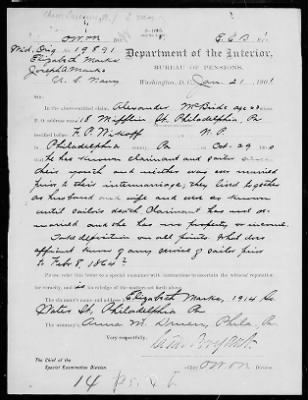 O.W.M. E.E.D.
Wid. Orig 19891
Elizabeth Marks
Joseph A Marks
U. S. Navy
Department of the Interior,
BUREAU OF PENSIONS,
Washington, D. C., Jan 21, 1901
In the above-entitled claim, Alexander McBride age
P. O. 18 Mifflin St. Philadelphia, Pa
testified before F. P. N. P.
in Philadelphia Pa Oct 29 1900
he has known claimant and sailor since
their youth and neither was ever married
prior to their intermarriage, they lived together
as husband and wife and were so known
until sailors death. Claimant has not re-
married and she has no property or income.
Take deposition on all points. What does
affiant know of army service of sailor prior
to Feb. 8, 1864?
Please refer this letter to a special examiner with instructions to ascertain the witness' reputation
for veracity, and his knowledge of the matters set forth above.
The claimant's name and address Elizabeth Marks, 1914 So
Water St. Philadelphia Pa
The attorney Anna M. Phila. Pa
Very respectfully,
Chief O.W.M. Division.
The Chief of the
Special Examination Division.
14